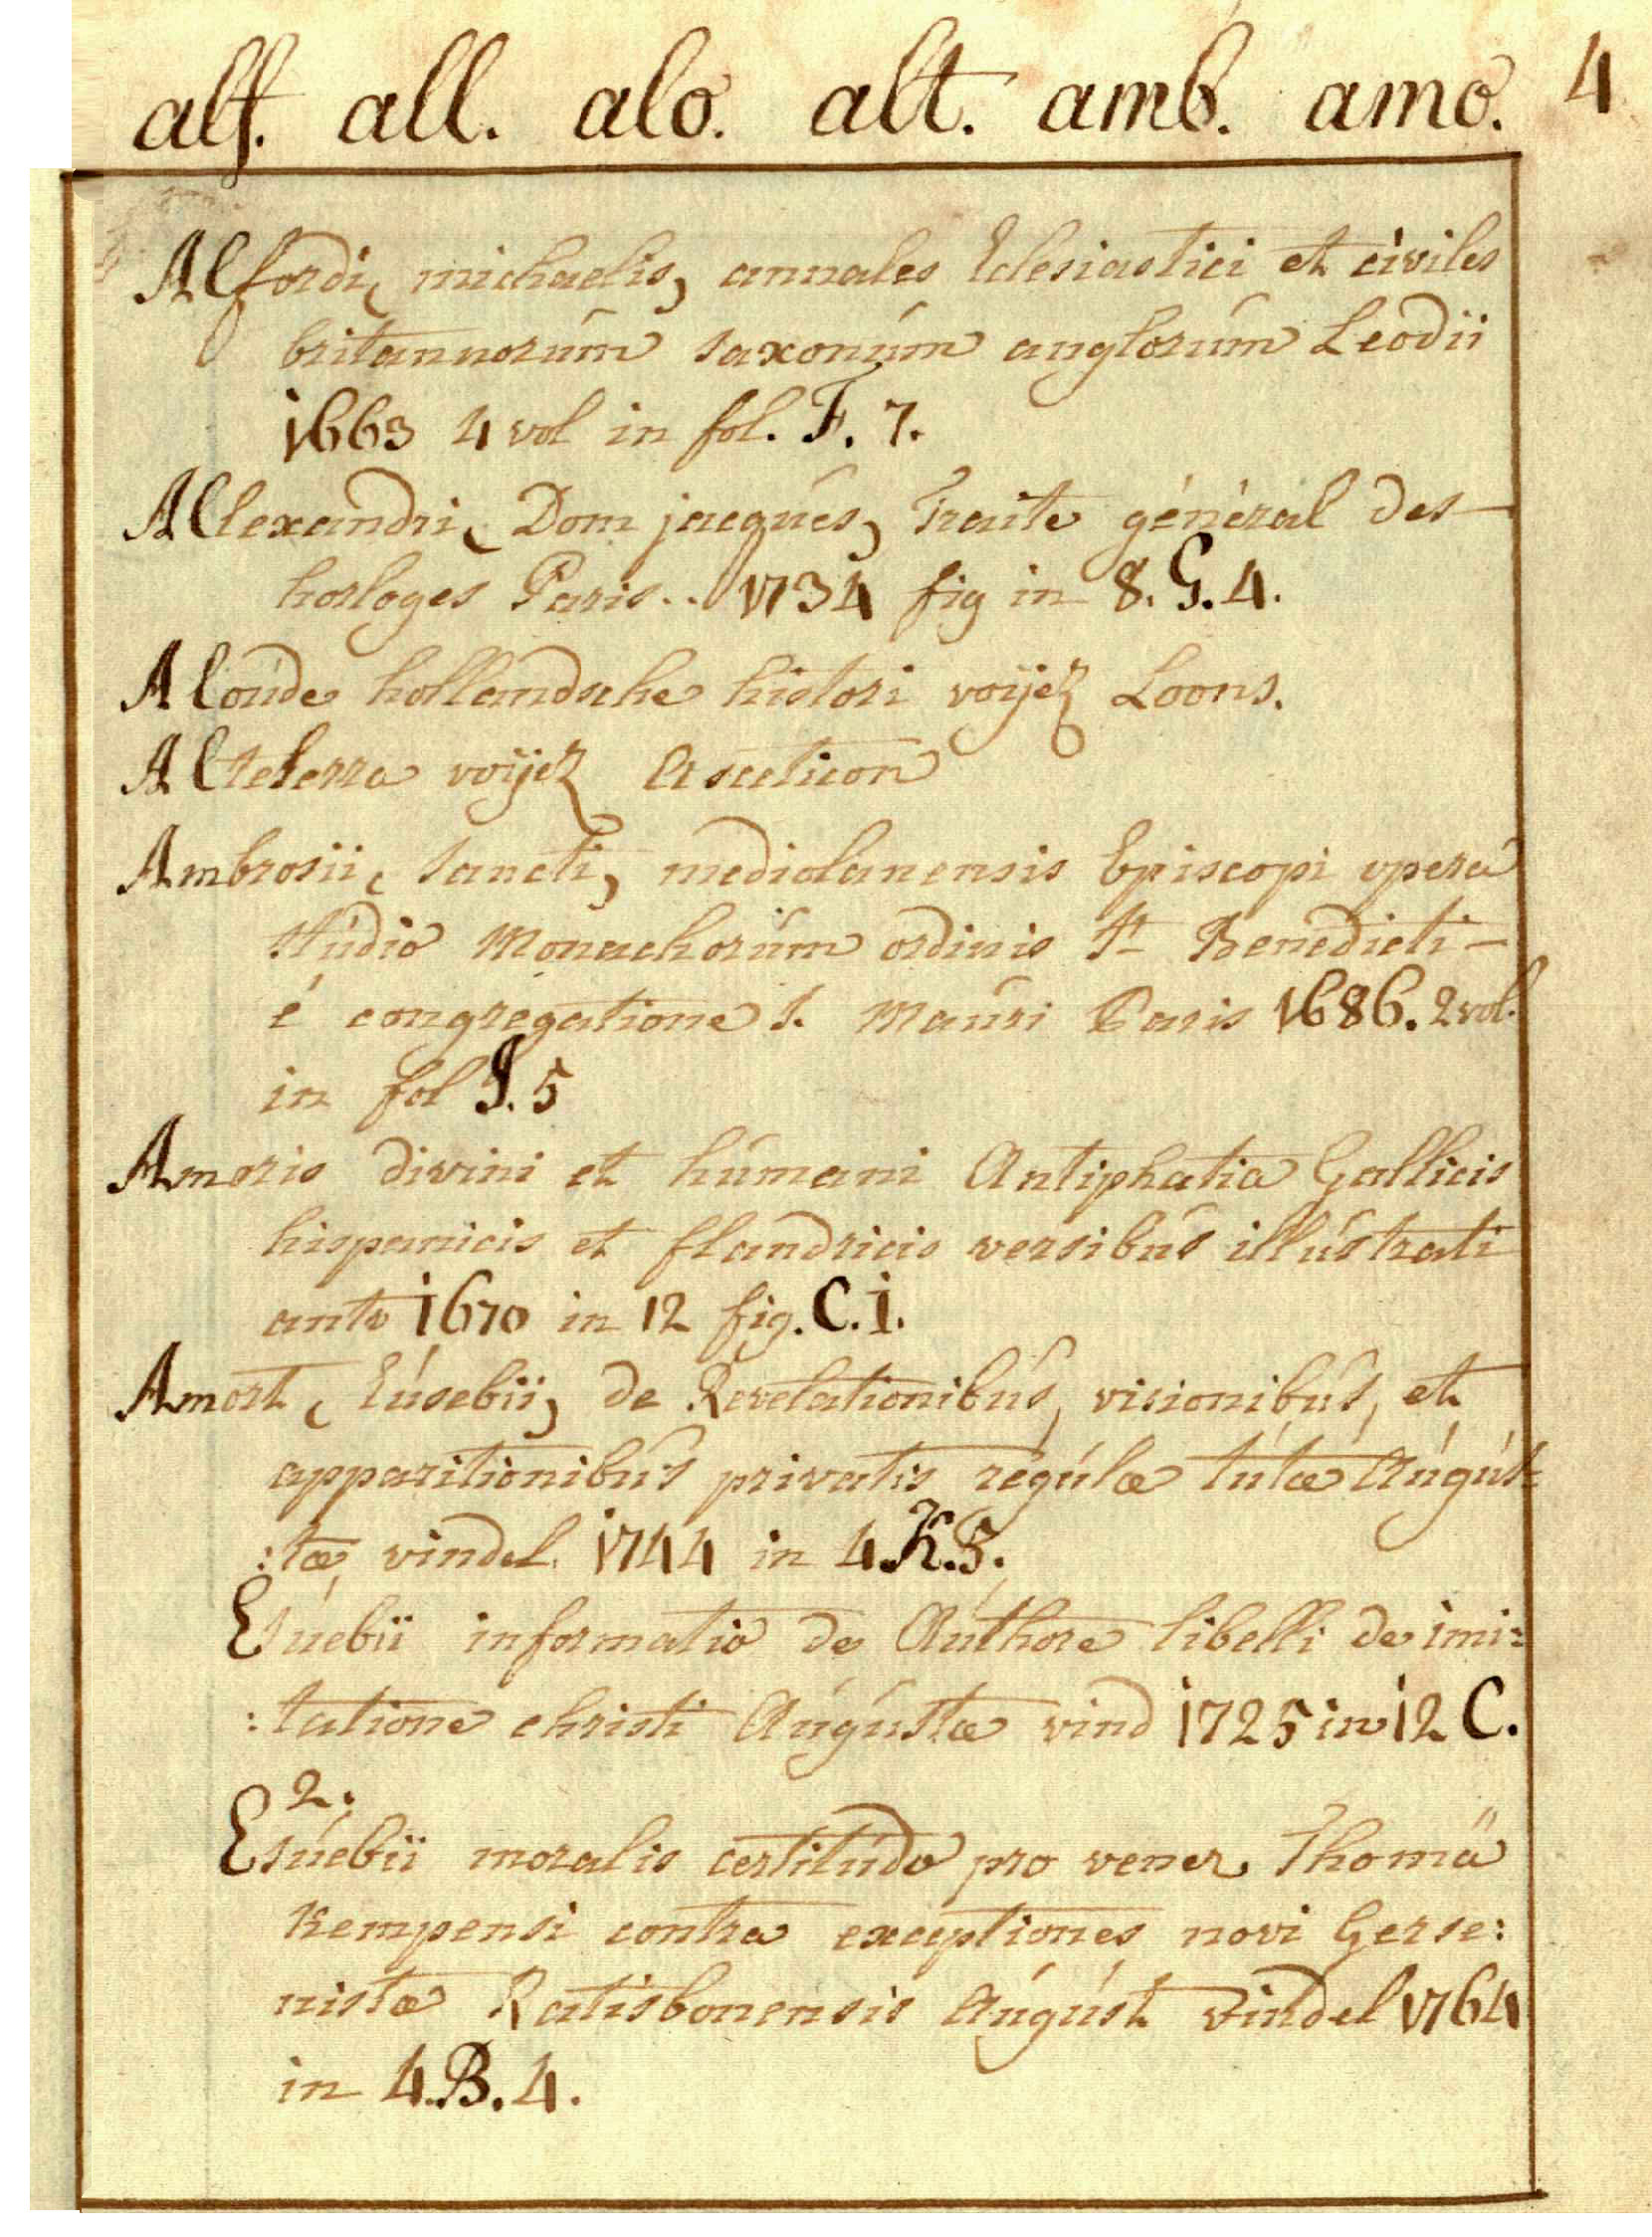 alf. all. alo. alt. amb. amo. 4
Alfordi, michaelis, annales Eclesiastici et civiles
britannorúm saxonúm anglorúm Leodii
1663 4 vol in fol. F. 7.
Allexandri, Dom jacqúes, Traite général des
horloges Paris.. 1734 fig in 8. G. 4.
Aloúde hollandsche histori voijez Loons.
Alteserra voijez Asceticon
Ambrosii, Sancti, mediolanensis Episcopi opera
stúdio Monachorúm ordinis St Benedicti
é congregatione S. Maúri Paris 1686. 2 vol.
in fol I. 5
Amoris divini et húmani Antiphatia Gallicis
hispanicis et flandricis versibús illústrati
antv 1670 in 12 fig. C. i.
Amort, Eúsebii, de Revelationibús, visionibús, et
apparitionibús privatis régúlæ tútæ Aúgús:
:tæ vindel. 1744 in 4. K. 5.
Esúebii informatio de Aúthore libelli de imi:
:tatione christi Aúgústæ vind 1725 in 12 C.
2.
Esúebii moralis certitúdo pro vener. Thomä
Kempensi contra exceptiones novi Gerse:
nistæ Ratisbonensis Aúgúst vindel 1764
in 4. B. 4.